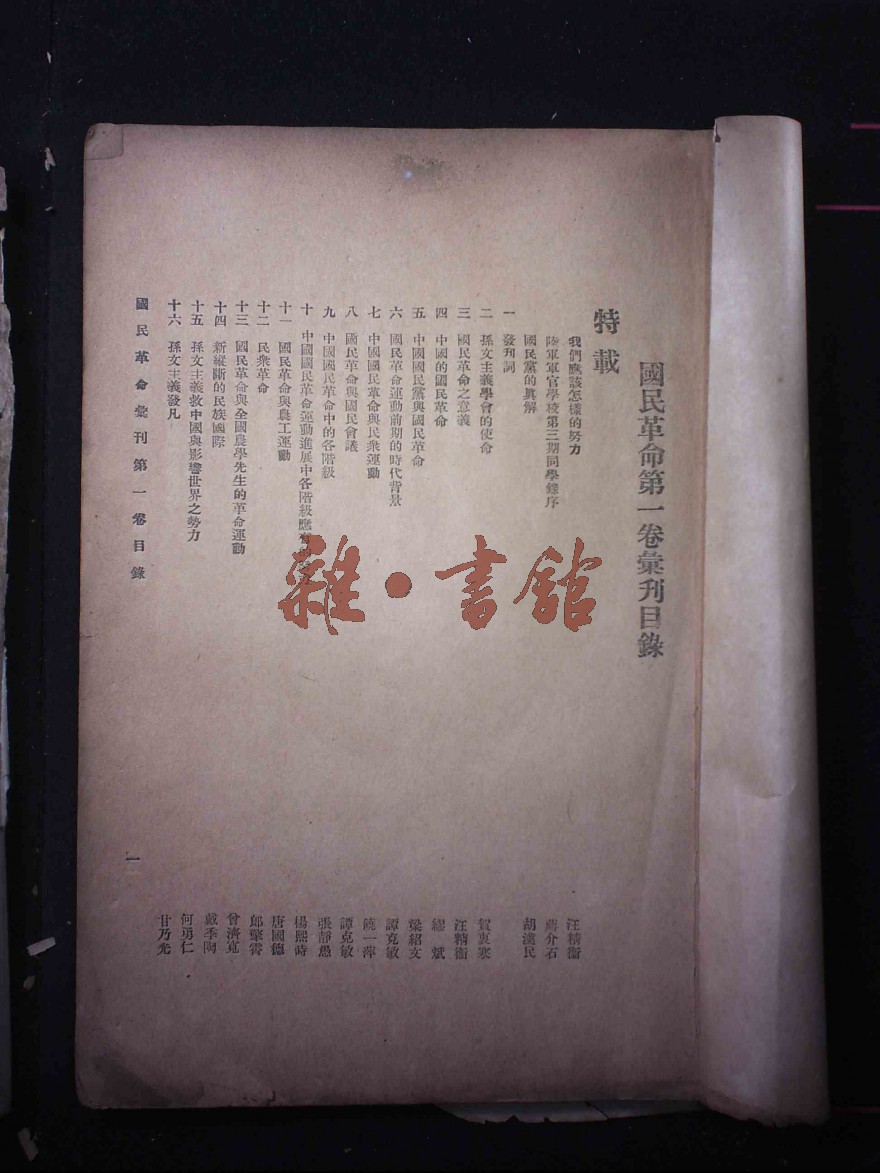 國民革命第一卷彙刊目錄
特載
我們應該怎樣的努力 汪精衞
陸軍軍官學校第三期同學錄序 蔣介石
國民黨的眞解 胡漢民
一 發刊詞
二 孫文主義學會的使命 賀衷寒
三 國民革命之意義 汪精衞
四 中國的國民革命 繆斌
五 中國國民黨與國民革命 梁紹文
六 國民革命運動前期的時代背景 譚克敏
七 中國國民革命與民衆運動 饒一萍
八 國民革命與國民會議 譚克敏
九 中國國民革命中的各階級 張靜愚
十 中國國民革命運動進展中各階級應有的 楊熙時
十一 國民革命與農工運動 唐國德
十二 民衆革命 郎擎霄
十三 國民革命與全國農學先生的革命運動 曾濟寬
十四 新縱斷的民族國際 戴季陶
十五 孫文主義救中國與影響世界之勢力 何勇仁
十六 孫文主義發凡 甘乃光
國民革命彙刊第一卷目錄
一
雜·書館